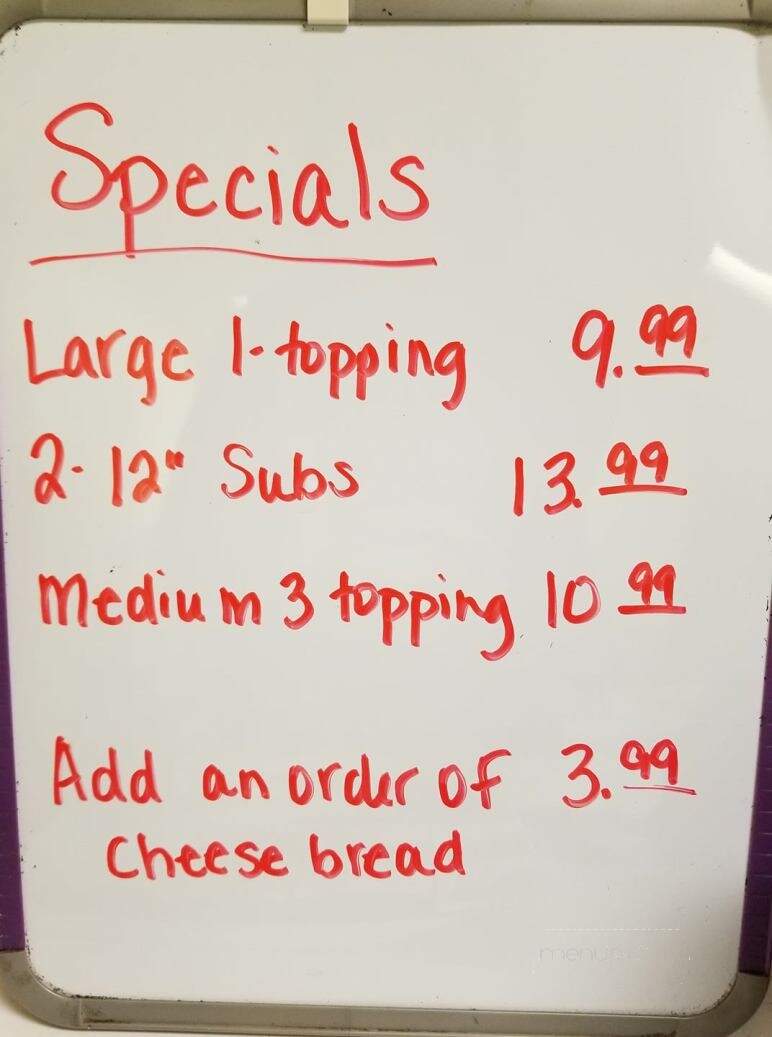 Specials
Large 1-topping 9.99
2-12" Subs 13.99
Medium 3 topping 10 99
Add an order of 3.99
Cheese bread